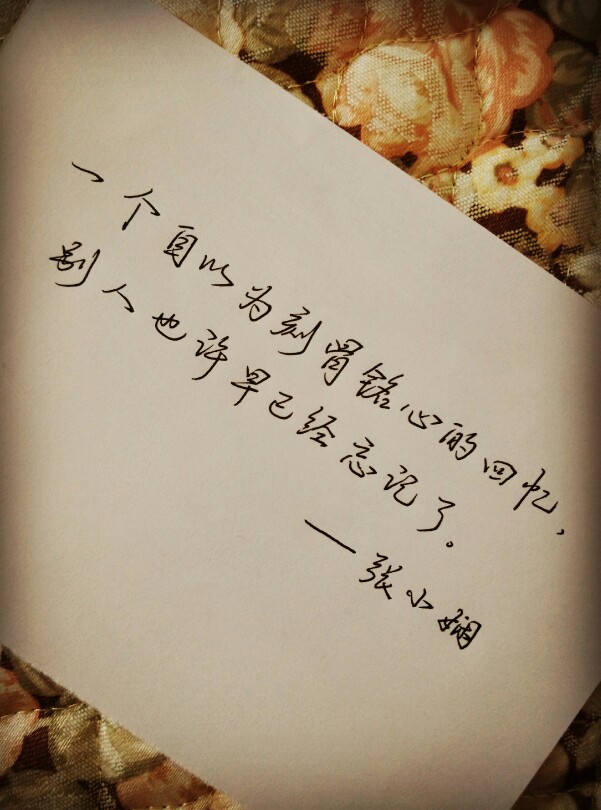 一个自以为刻骨铭心的回忆，
别人也许早已经忘记了。
—张小娴